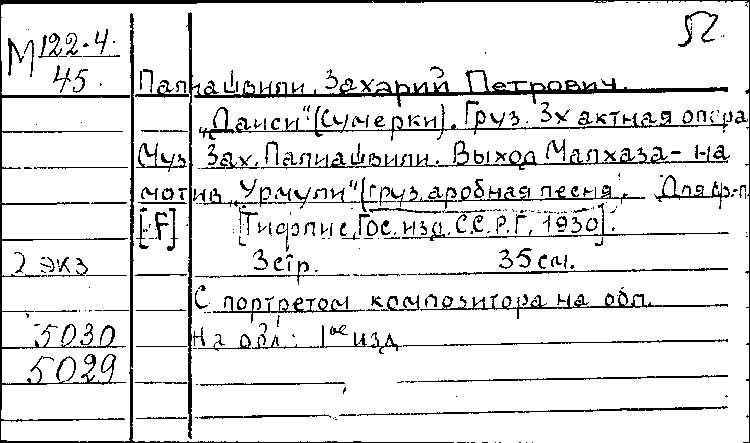 М 122-4. Ω
45.
Палиашвили, Захарий Петрович.
„Даиси“ (Сумерки). Груз. 3х актная опера
Муз. Зах. Палиашвили. Выход Малхаза - на
мотив „Урмули“ (груз. аробная песня). Для
[F] [Тифлис, Гос. изд. С.С.Р.Г., 1930].
2 экз 3 стр. 35 см.
С портретом композитора на обл.
5030 На обл: 1ое изд
5029